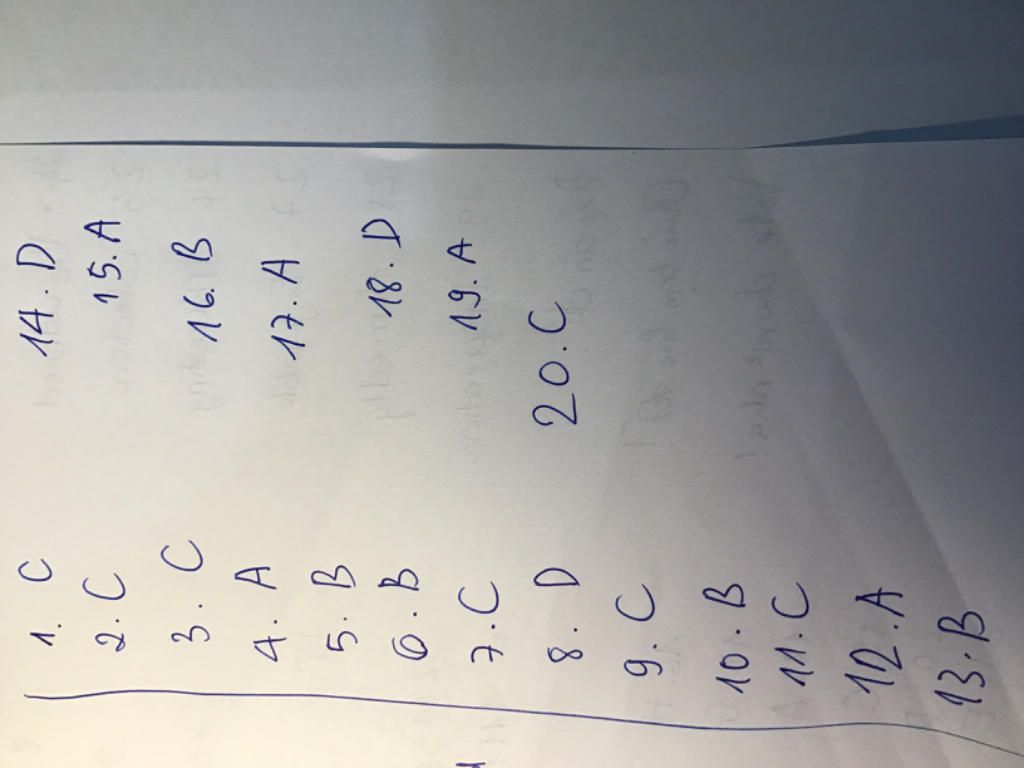 1. C
2. C
3. C
4. A
5. B
6. B
7. C
8. D
9. C
10. B
11. C
12. A
13. B
14. D
15. A
16. B
17. A
18. D
19. A
20. C